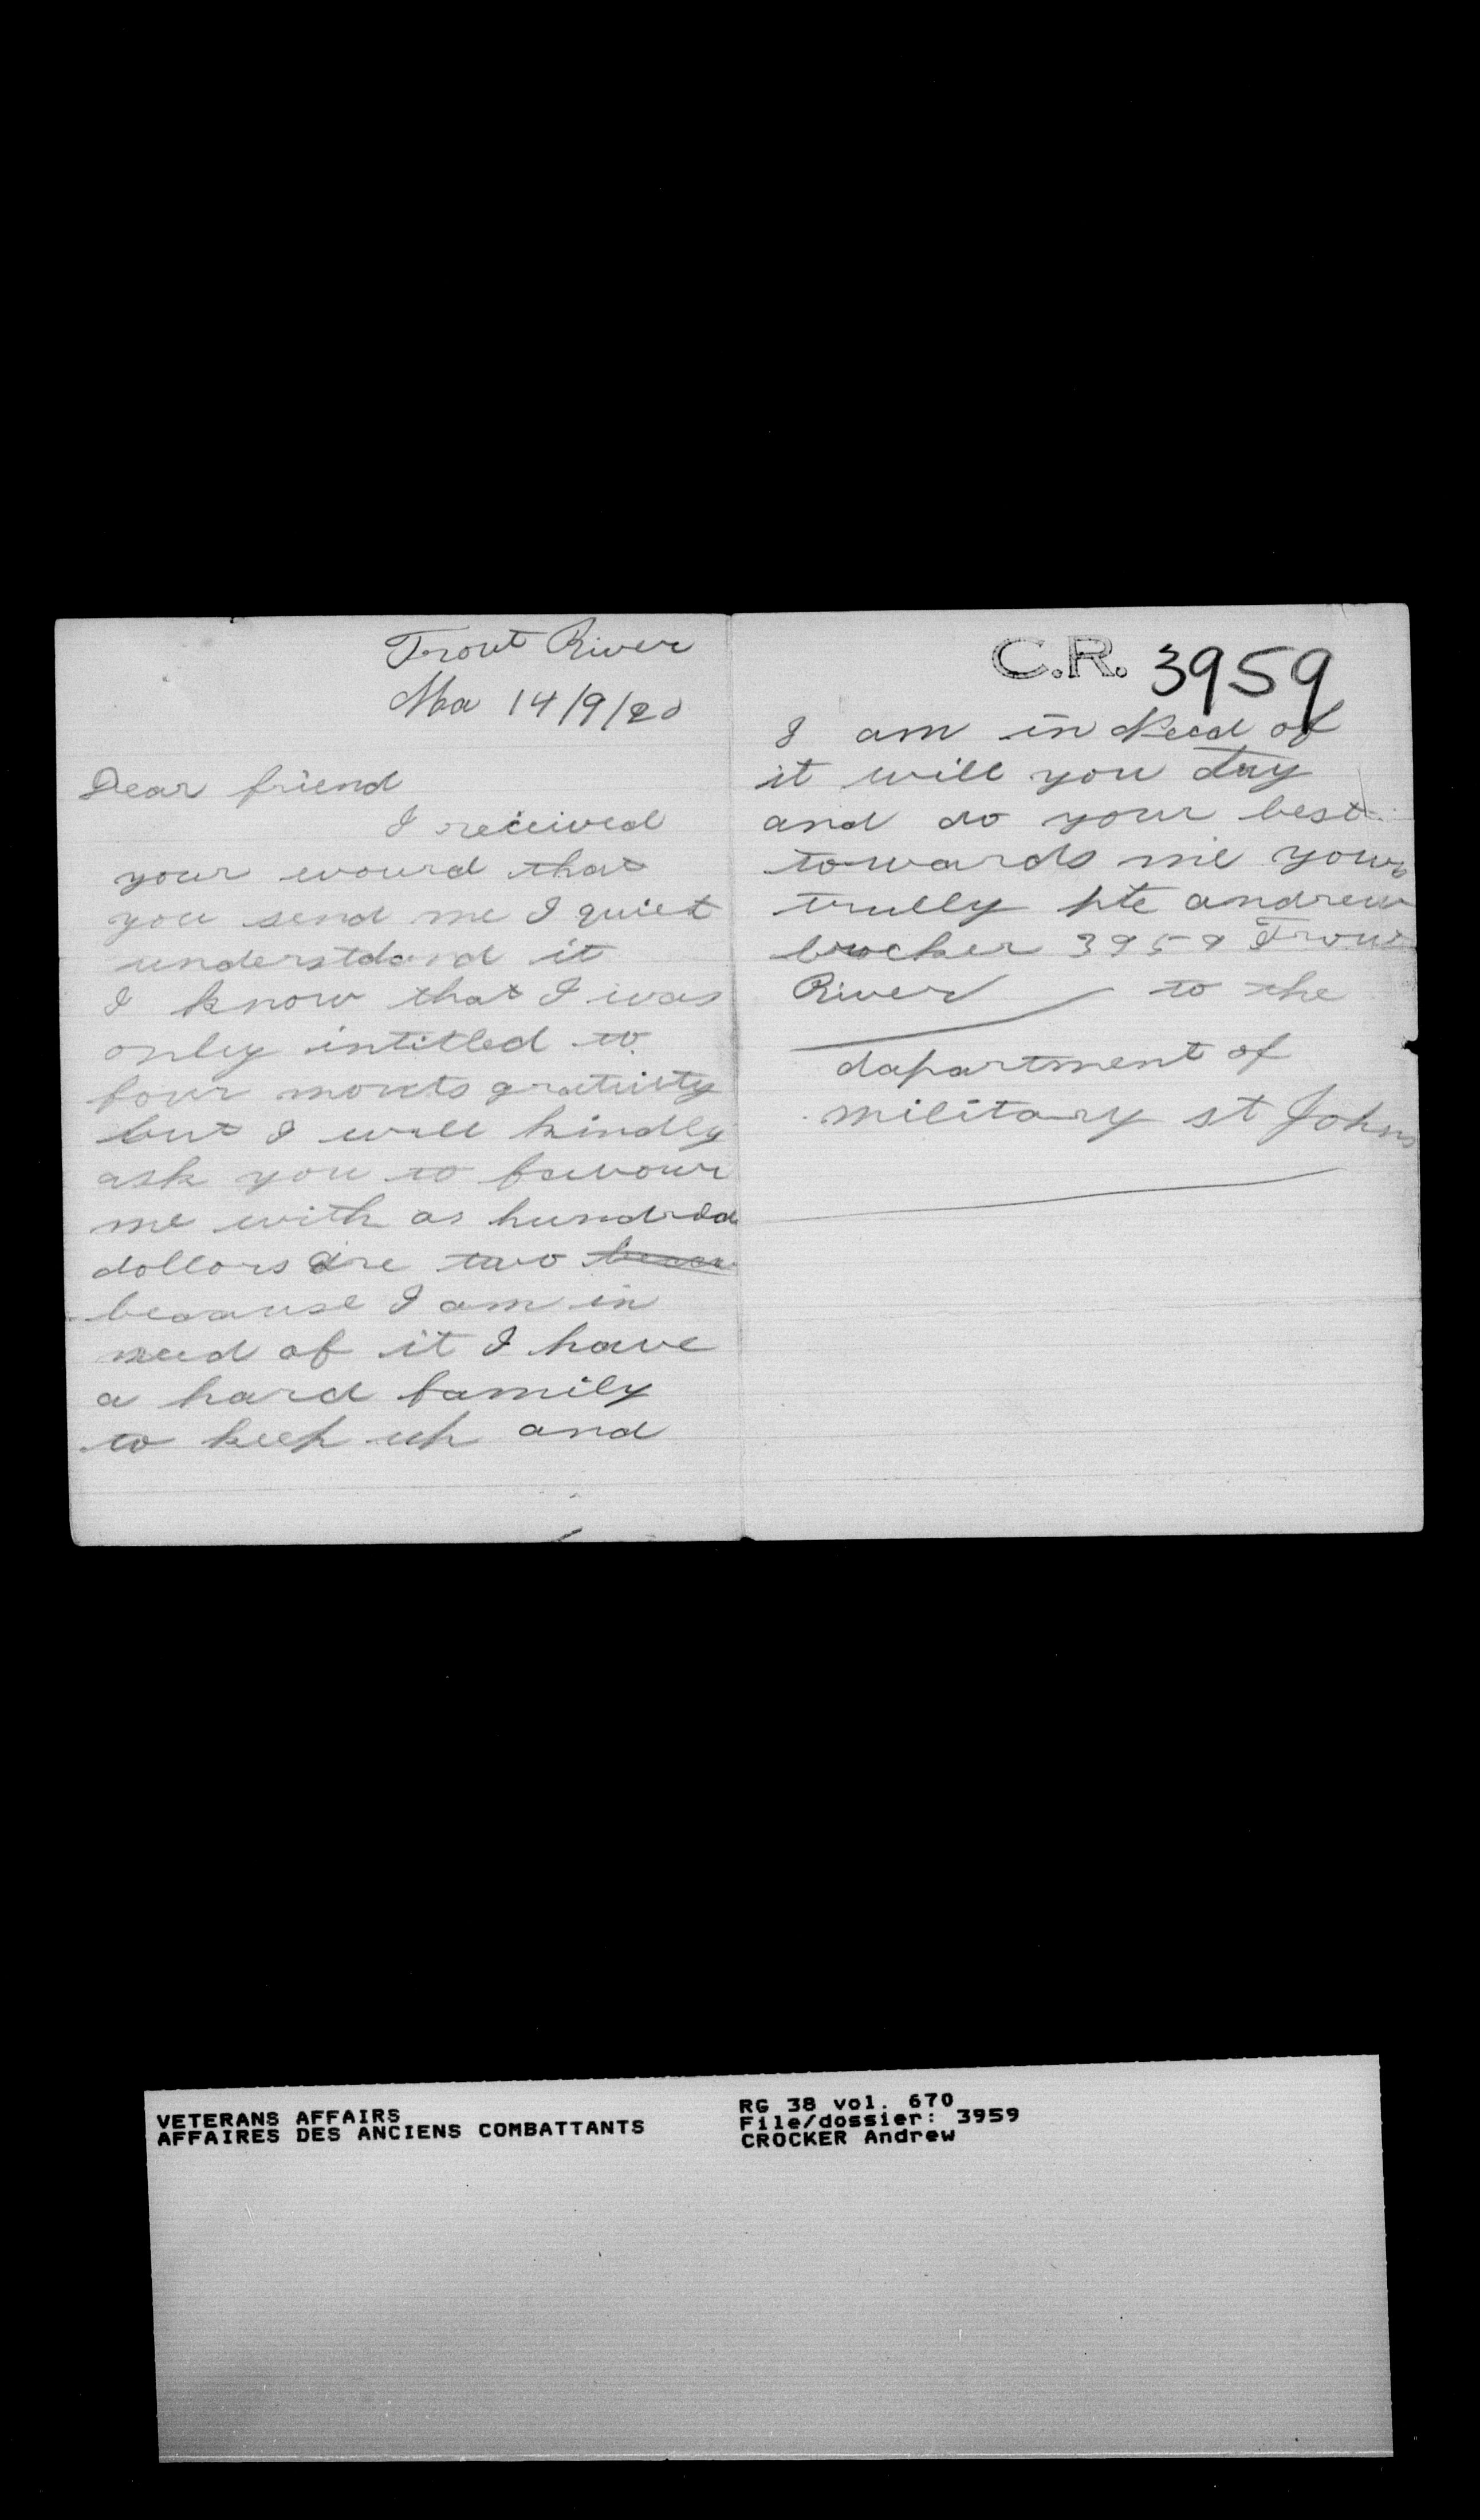 Trout River
Ma 14/9/20
Dear friend
I received
your wourd that
you send me I quiet
understdand it
I know that I was
only intitled to
four monts gratuity
but I will kindly
ask you to favour
me with as hundred
dollors are two
because I am in
need of it I have
a hard family
to keep up and
C.R. 3959
I am in Need of
it will you try
and do your best
towards me yours
trully pte andrew
crocker 3959 Trout
River to the
dapartment of
military st Johns
VETERANS AFFAIRS
AFFAIRES DES ANCIENS COMBATTANTS
RG 38 vol. 670
File/dossier: 3959
CROCKER Andrew